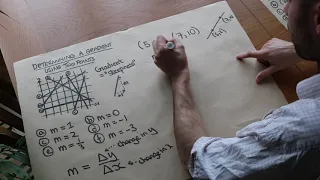 DETERMINING A GRADIENT
USING TWO POINTS
Gradient
= "steepness"
(5, (7,10)
a m = 1
d m = 0
b m = 2
e m = -1
c m = 1/2
f m = -3
m = Δy ← change in y
Δx ← change in x